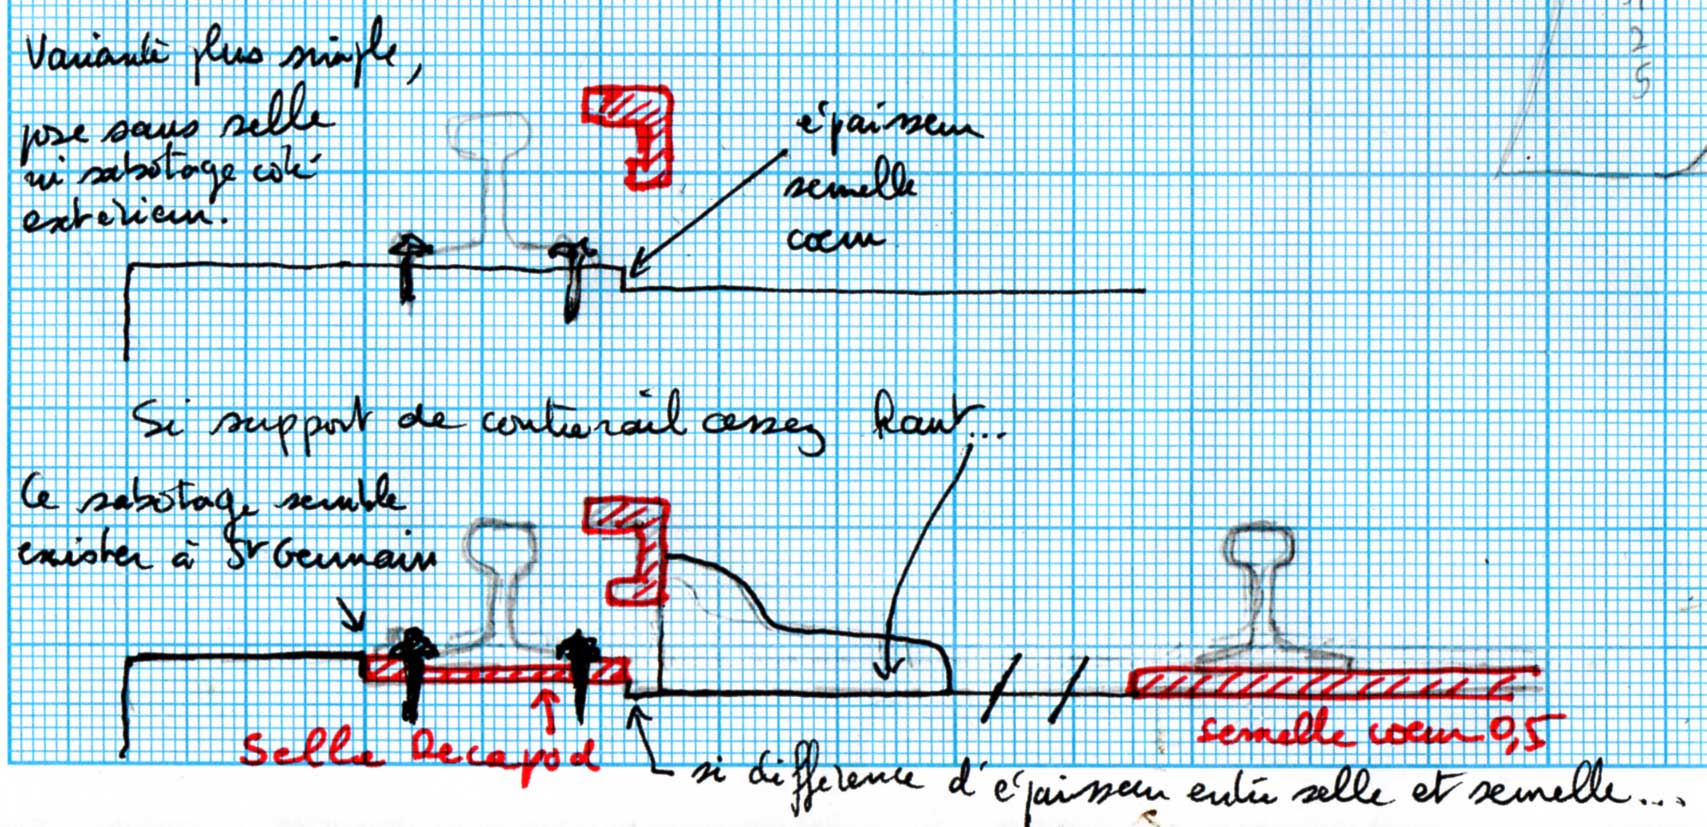 Variante plus simple,
pose sans selle
ni sabotage coté
extérieur.
épaisseur
semelle
cœur
Si support de contrerail assez haut...
Ce sabotage semble
exister à St Germain
Selle Decapod
semelle cœur 0,5
si différence d'épaisseur entre selle et semelle...
2
5